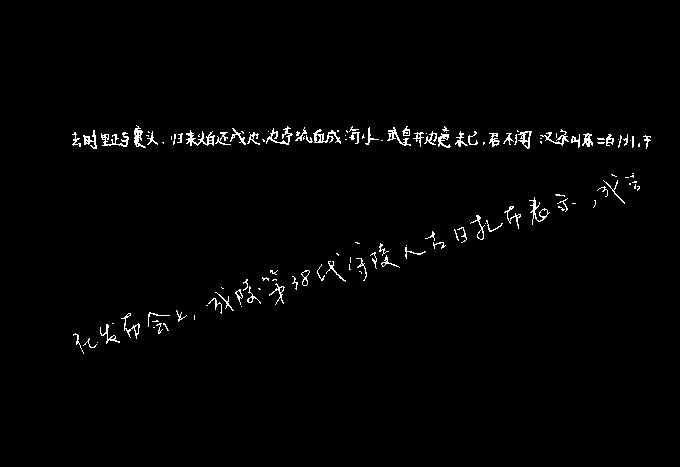 去时里正与裹头，归来头白还戍边，边亭流血成海水，武皇开边意未已，君不闻 汉家山东二百州，千
在发布会上，成陵第38代守陵人古日扎布表示，成吉